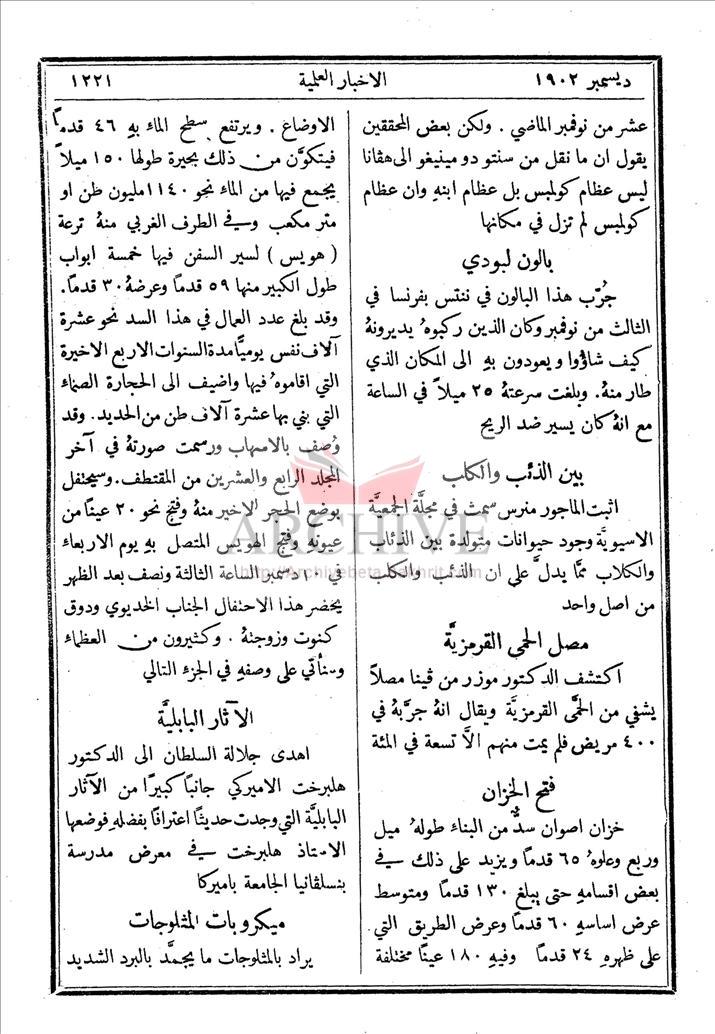 ديسمبر ١٩٠٢
الاخبار العلمية
١٢٢١
عشر من نوفمبر الماضي . ولكن بعض المحققين
يقول ان ما نقل من سنتو دو مينيغو الى هڤانا
ليس عظام كولمبس بل عظام ابنهِ وان عظام
كولمبس لم تزل في مكانها
بالون لبودي
جُرّب هذا البالون في ننتس بفرنسا في
الثالث من نوفمبر وكان الذين ركبوهُ يديرونهُ
كيف شاؤوا ويعودون بهِ الى المكان الذي
طار منهُ . وبلغت سرعتهُ ٢٥ ميلاً في الساعة
مع انهُ كان يسير ضد الريح
بين الذئب والكلب
اثبت الماجور منرس سمث في مجلَّة الجمعيَّة
الاسيويَّة وجود حيوانات متولدة بين الذئاب
والكلاب ممَّا يدلُّ على ان الذئب والكلب
من اصل واحد
مصل الحمى القرمزيَّة
اكتشف الدكتور موزر من ڤينا مصلاً
يشفي من الحمَّى القرمزيَّة ويقال انهُ جرَّبهُ في
٤٠٠ مريض فلم يمت منهم الاَّ تسعة في المئة
فتح الخزان
خزان اصوان سدٌّ من البناء طولهُ ميل
وربع وعلوهُ ٦٥ قدماً ويزيد على ذلك في
بعض اقسامهِ حتى يبلغ ١٣٠ قدماً ومتوسط
عرض اساسهِ ٦٠ قدماً وعرض الطريق التي
على ظهرهِ ٢٤ قدماً وفيهِ ١٨٠ عيناً مختلفة
الاوضاع . ويرتفع سطح الماء بهِ ٤٦ قدماً
فيتكوَّن من ذلك بحيرة طولها ١٥٠ ميلاً
يجمع فيها من الماء نحو ١١٤٠ مليون طن او
متر مكعب وفي الطرف الغربي منهُ ترعة
( هويس ) لسير السفن فيها خمسة ابواب
طول الكبير منها ٥٩ قدماً وعرضهُ ٣٠ قدماً .
وقد بلغ عدد العمال في هذا السد نحو عشرة
آلاف نفس يوميًّا مدة السنوات الاربع الاخيرة
التي اقاموهُ فيها واضيف الى الحجارة الصماء
التي بني بها عشرة آلاف طن من الحديد . وقد
وُصف بالاسهاب ورسمت صورتهُ في آخر
المجلد الرابع والعشرين من المقتطف . وسيحتفل
بوضع الحجر الاخير منهُ وفتح نحو ٢٠ عيناً من
عيونهِ وفتح الهويس المتصل بهِ يوم الاربعاء
في ١٠ دسمبر الساعة الثالثة ونصف بعد الظهر
يحضر هذا الاحتفال الجناب الخديوي ودوق
كنوت وزوجتهُ . وكثيرون من العظماء
وسنأتي على وصفهِ في الجزء التالي
الآثار البابليَّة
اهدى جلالة السلطان الى الدكتور
هلبرخت الاميركي جانباً كبيراً من الآثار
البابليَّة التي وجدت حديثاً اعترافاً بفضلهِ فوضعها
الاستاذ هلبرخت في معرض مدرسة
بنسلڤانيا الجامعة باميركا
ميكروبات المثلوجات
يراد بالمثلوجات ما يجمَّد بالبرد الشديد
ARCHIVE
http://Archivebeta.Sakhrit.com